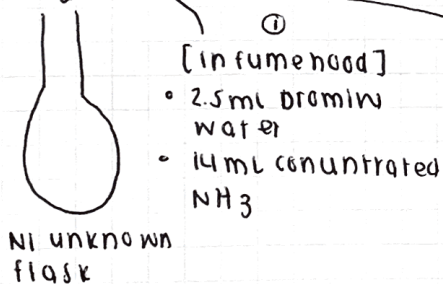 ①
[in fumehood]
• 2.5mL bromin
water
• 14mL conuntrated
NH3
Ni unknown
flask